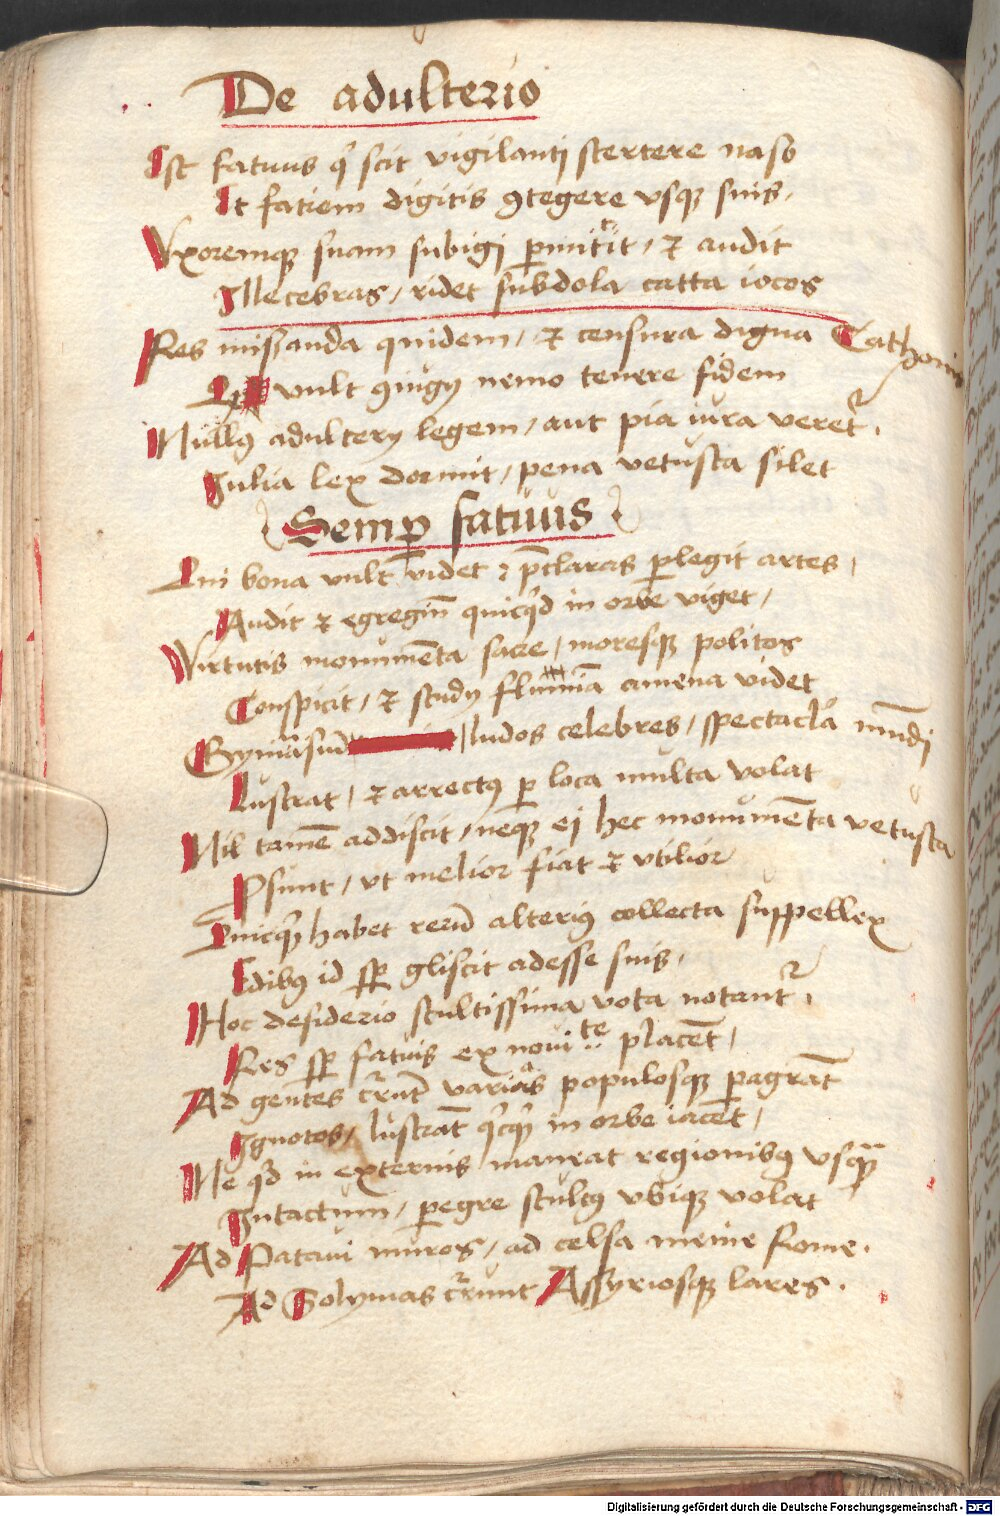 De adulterio
Est fatuus qͥ scit vigilantj stertere naso
Et fatiem digitis ꝯtegere vsqꝫ suis,
Vxoremqꝫ suam subigj ꝑmittit, ⁊ audit
Illecebras, ridet subdola catta iocos
Res misͣanda quidem, ⁊ censura digna Cathonis
vult ꝯiugij nemo tenere fidem
Nullꝰ adulterij legem, aut pia iura veretᷣ.
Iulia lex dormit, pena vetusta silet
Semꝑ fatuus
Qui bona vult videt ⁊ p̄claras ꝑlegit artes,
Audit ⁊ egregiū quicqͥd in orbe viget,
Virtutis monumēta sacre, moresqꝫ politos
Conspicit, ⁊ studij flumīa amena videt
Gymnasiū ludos celebres, spectacla mūdj
Lustrat, ⁊ arrectꝰ ꝑ loca multa volat
Nil tamē addiscit, neqꝫ ej hec monumēta vetusta
Ꝓsunt, vt melior fiat ⁊ vtilior
Quicqͥd habet rerū alteriꝰ collecta suppellex
Edibꝰ id sꝑ gliscit adesse suis,
Hoc desiderio stultissima vota notantᷣ,
Res sꝑ fatuis ex nouitte placēt,
Ad gentes cᷣrūt varias populosqꝫ ꝑagrāt
Ignotos, lustrāt qͥcqͥd in orbe iacēt,
Ne qͥd in externis maneat regionibꝰ vsqꝫ̄
Intactum, ꝑegre stultꝰ vbiqꝫ volat
Ad Pataui muros, ad celsa menie Rome.
Ad Solymas cᷣrunt Assyriosqꝫ lares.
Digitalisierung gefördert durch die Deutsche Forschungsgemeinschaft - DFG